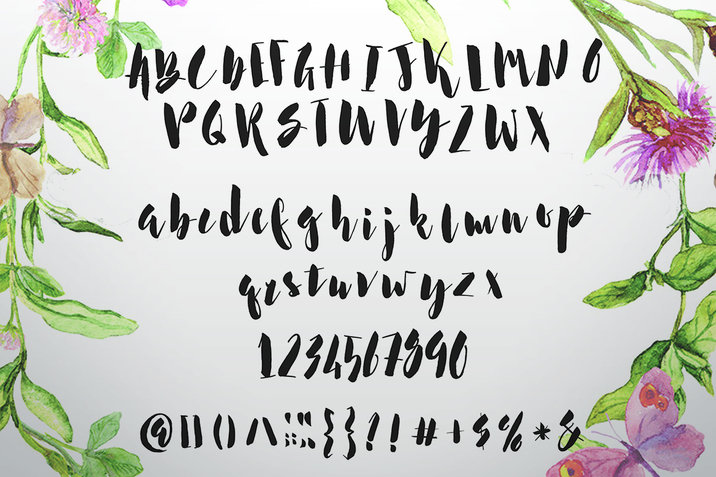 ABCDEFGHIJKLMNO
PQRSTUVYZWX
abcdefghijklmnop
qrstuvwyzx
1234567890
@[]()/\:;"{}?!#+$%*&